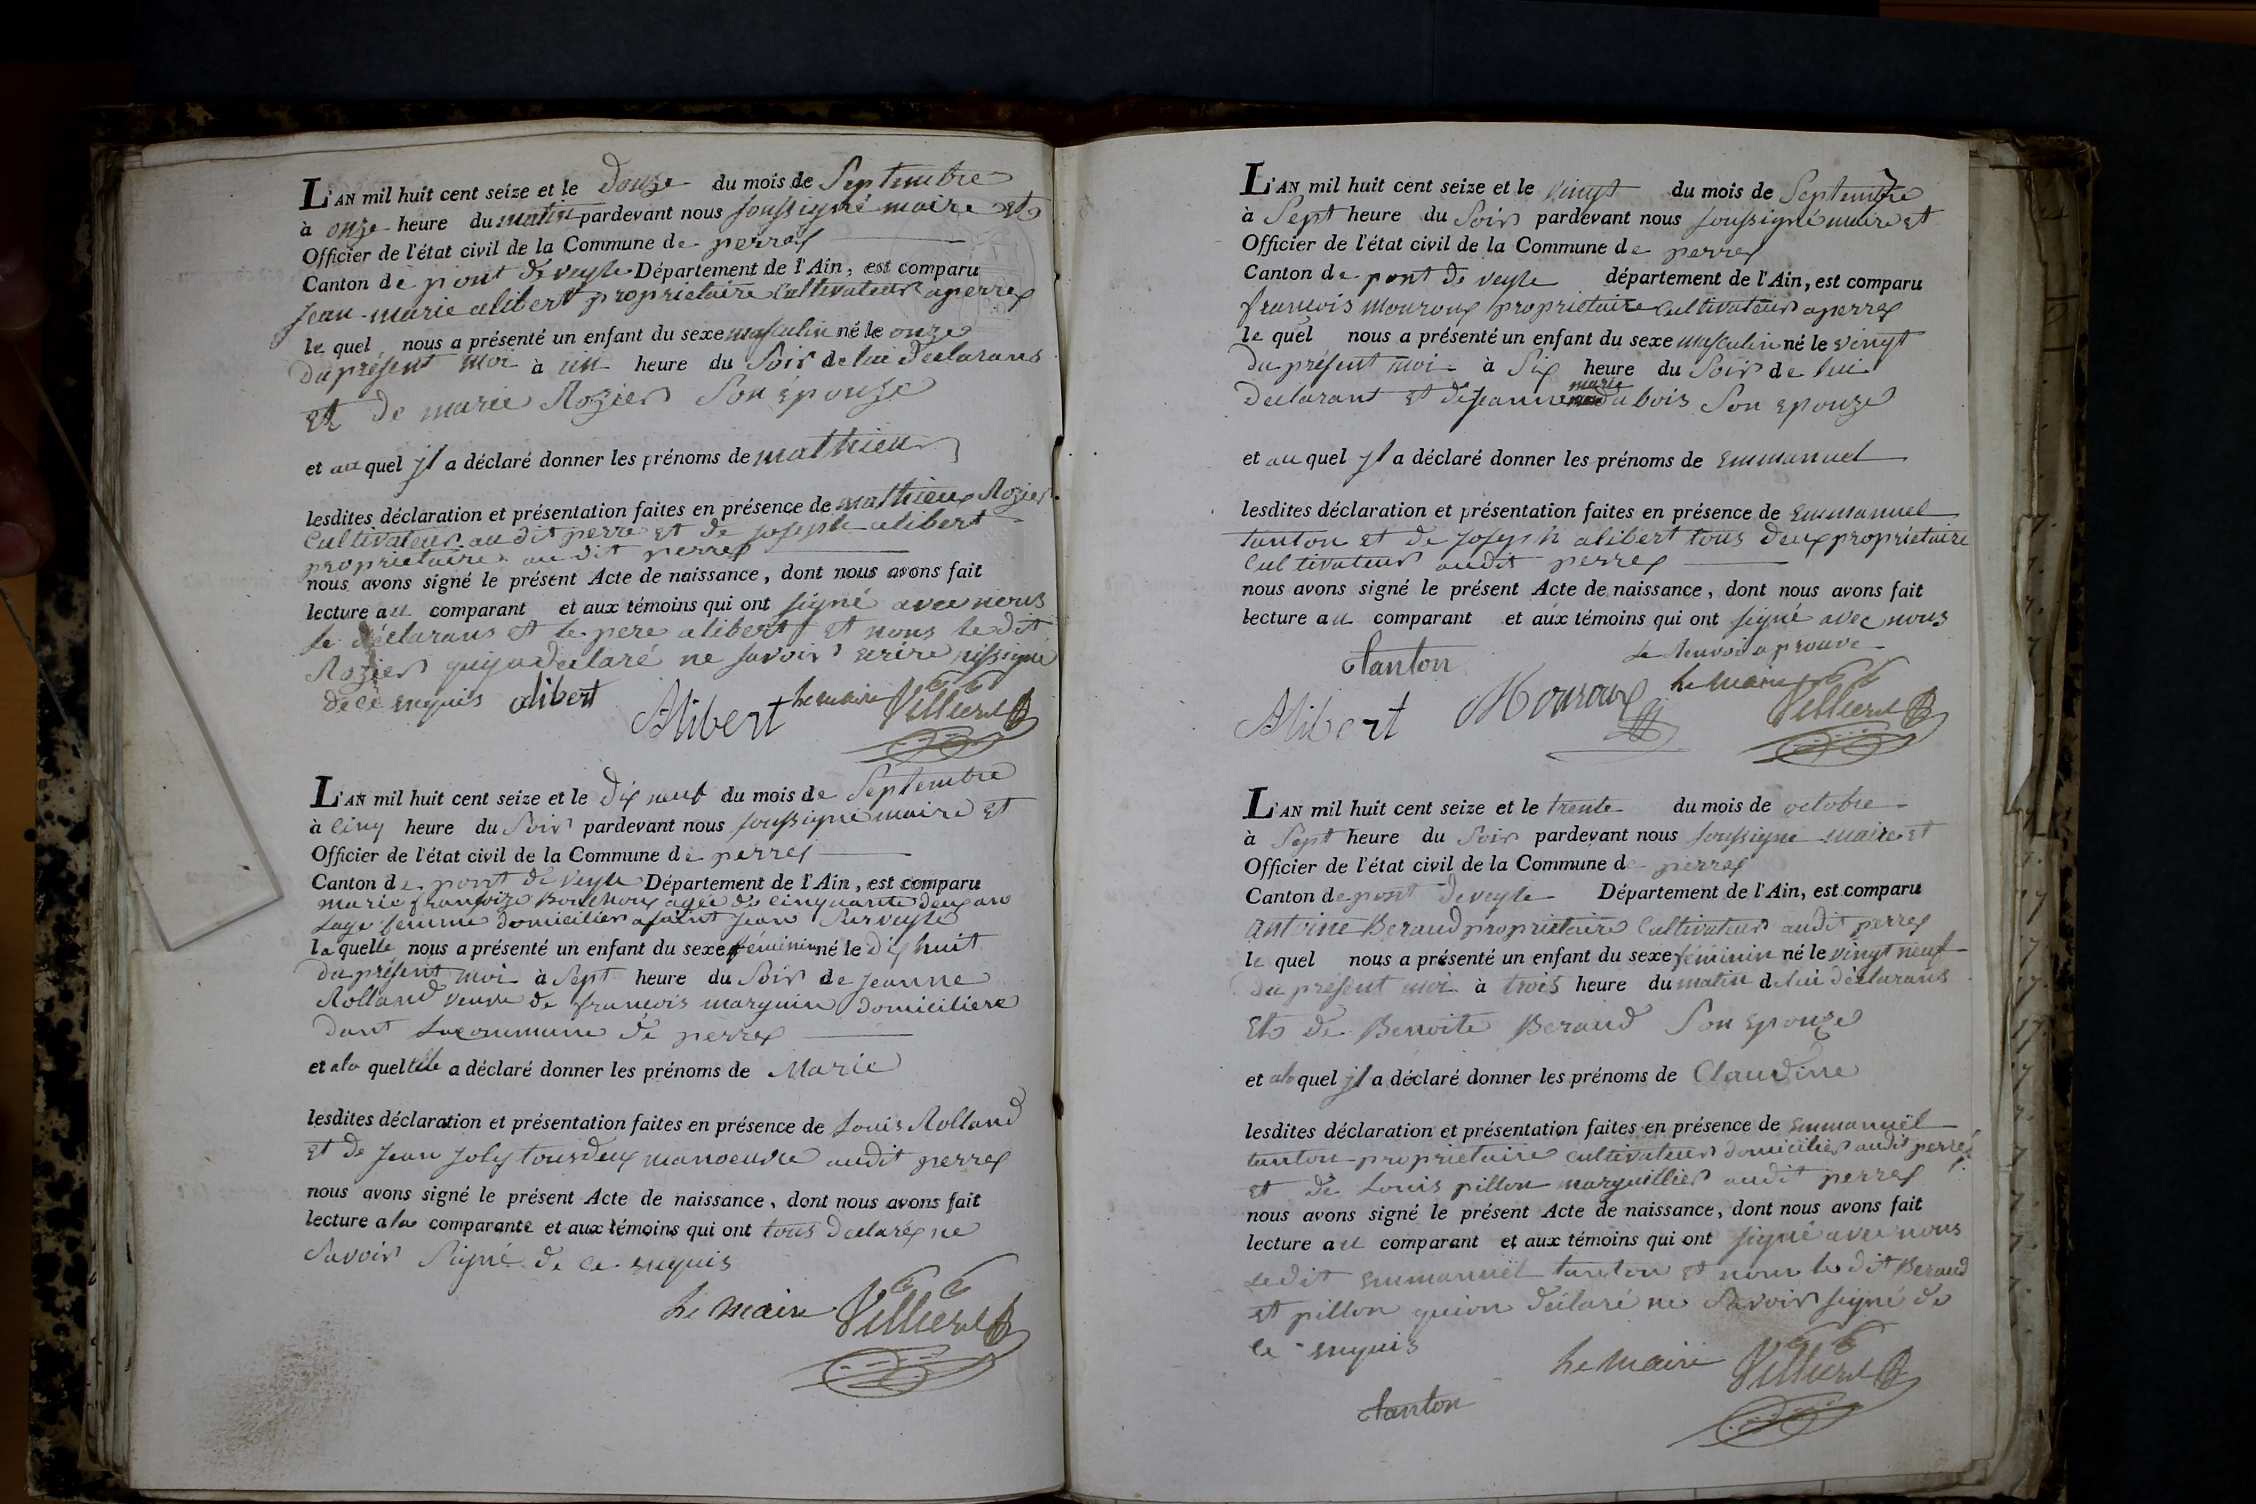 L'AN mil huit cent seize et le Douze du mois de Septembre
à onze heure du matin pardevant nous soussigné maire et
Officier de l'état civil de la Commune de perrex
Canton de pont de veyle Département de l'Ain, est comparu
Jean-marie alibert proprietaire Cultivateur a perrex
le quel nous a présenté un enfant du sexe masculin né le onze
Du présent moi à un heure du Soir de lui Declarans
et de marie Rozier Son epouze
et au quel jl a déclaré donner les prénoms de mathieu
lesdites déclaration et présentation faites en présence de mathieu Rozier
Cultivateur au dit perrex et de joseph alibert
proprietaire au dit perrex
nous avons signé le présent Acte de naissance, dont nous avons fait
lecture au comparant et aux témoins qui ont signé avec nous
le déclarans et le pere alibert et nons le dit
Rozier qui a declaré ne savoir ecrire ni signe
de ce enquis alibert
Alibert le maire Villieret
L'AN mil huit cent seize et le Dix neuf du mois de Septembre
à Cinq heure du Soir pardevant nous soussigné maire et
Officier de l'état civil de la Commune de perrex
Canton de pont de veyle Département de l'Ain, est comparu
marie françoize Bouchoux agée de cinquante deux ans
sage femme domicilier a saint jean sur veyle
la quelle nous a présenté un enfant du sexe féminin né le dix huit
du présent moi à Sept heure du Soir de jeanne
Rolland veuve de francois marguin domiciliere
dant la commune de perrex
et ala quelle elle a déclaré donner les prénoms de Marie
lesdites déclaration et présentation faites en présence de Louis Rolland
et de jean joly tous deux manoeuvre audit perrex
nous avons signé le présent Acte de naissance, dont nous avons fait
lecture a la comparante et aux témoins qui ont tous declarés ne
Savoir Signé de ce enquis
le maire Villieret
L'AN mil huit cent seize et le vingt du mois de Septembre
à Sept heure du Soir pardevant nous soussigné maire et
Officier de l'état civil de la Commune de perrex
Canton de pont de veyle département de l'Ain, est comparu
françois mouroux proprietaire Cultivateur a perrex
le quel nous a présenté un enfant du sexe masculin né le vingt
du présent moi à Six heure du Soir de lui
marie
declarant et de jeanne dubois Son epouze
et au quel jl a déclaré donner les prénoms de emmanuel
lesdites déclaration et présentation faites en présence de emmanuel
tanton et de joseph alibert tous deux propriétaire
Cultivateur audit perrex
nous avons signé le présent Acte de naissance, dont nous avons fait
lecture au comparant et aux témoins qui ont signé avec nous
le renvoi aprouvé
tanton
le maire
Alibert Mouroux Villieret
L'AN mil huit cent seize et le trente du mois de octobre
à Sept heure du Soir pardevant nous soussigné maire et
Officier de l'état civil de la Commune de perrex
Canton de pont de veyle Département de l'Ain, est comparu
antoine Beraud proprietaire Cultivateur audit perrex
le quel nous a présenté un enfant du sexe féminin né le vingt neuf
du présent moi à trois heure du matin de lui déclarans
et de Benoite Beraud Son epouze
et ala quel jl a déclaré donner les prénoms de Claudine
lesdites déclaration et présentation faites en présence de emmanuël
tanton proprietaire cultivateur domicilier audit perrex
et de Louis pillon marguillier audit perrex
nous avons signé le présent Acte de naissance, dont nous avons fait
lecture au comparant et aux témoins qui ont signé avec nous
ledit emmanuël tanton et nom le dit Beraud
et pillon qui on déclaré ne Savoir signé de
ce enquis
le maire Villieret
tanton